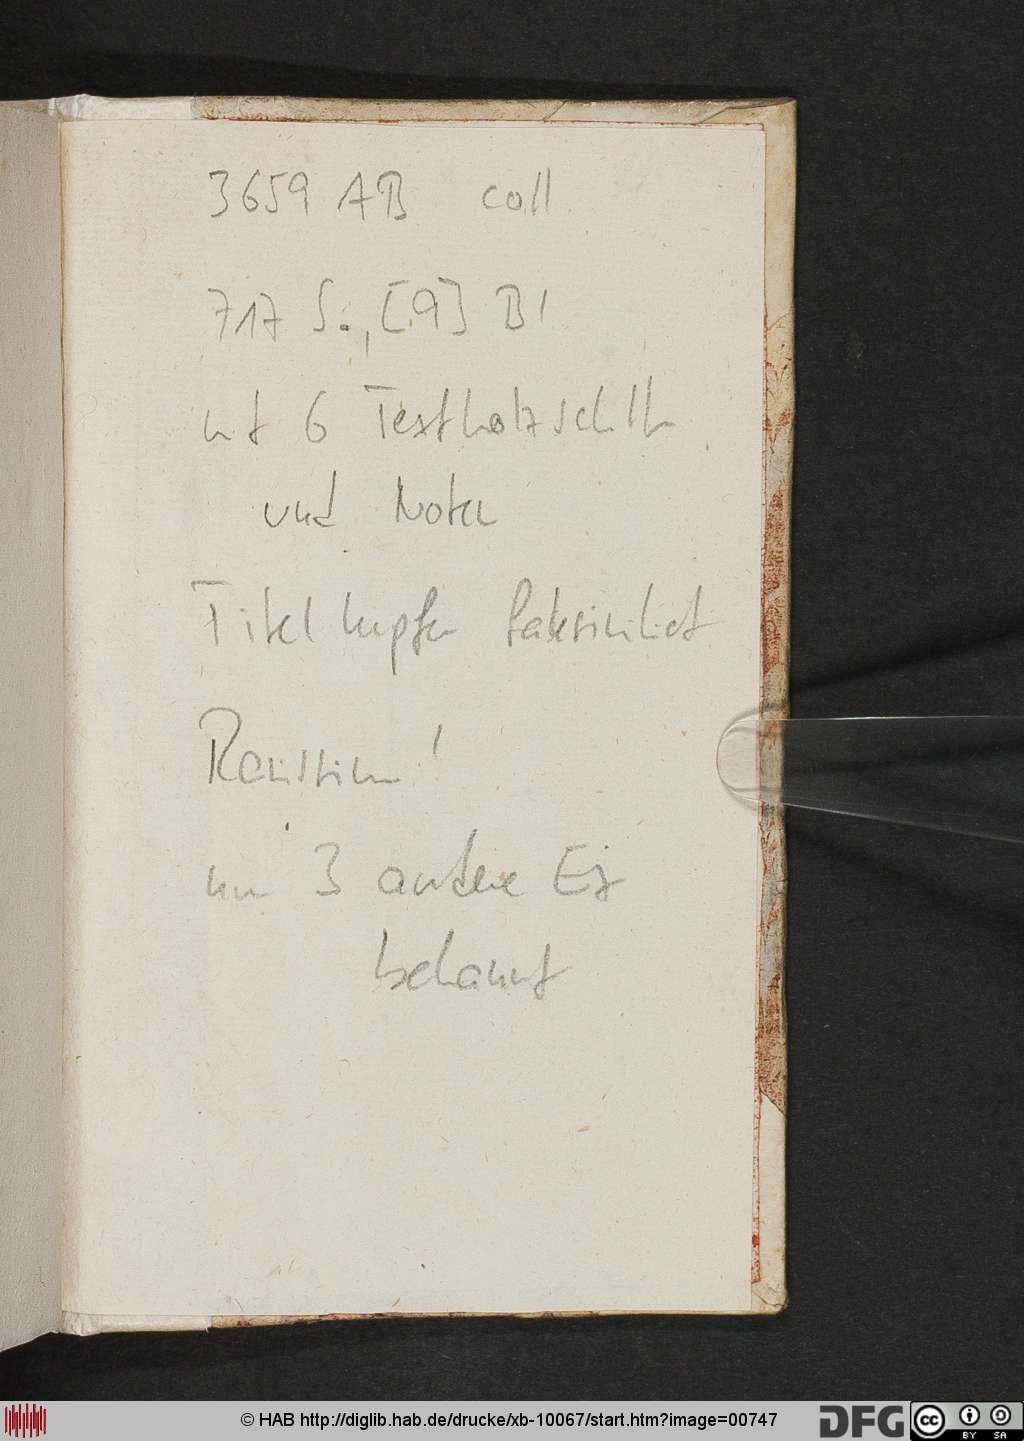 3659 AB coll
717 S., [9] Bl
mit 6 Textholzschn
und Noten
Titelkupfer faksimiliert
Rarissim!
nur 3 andere Ex
bekannt
© HAB http://diglib.hab.de/drucke/xb-10067/start.htm?image=00747
DFG
cc BY SA